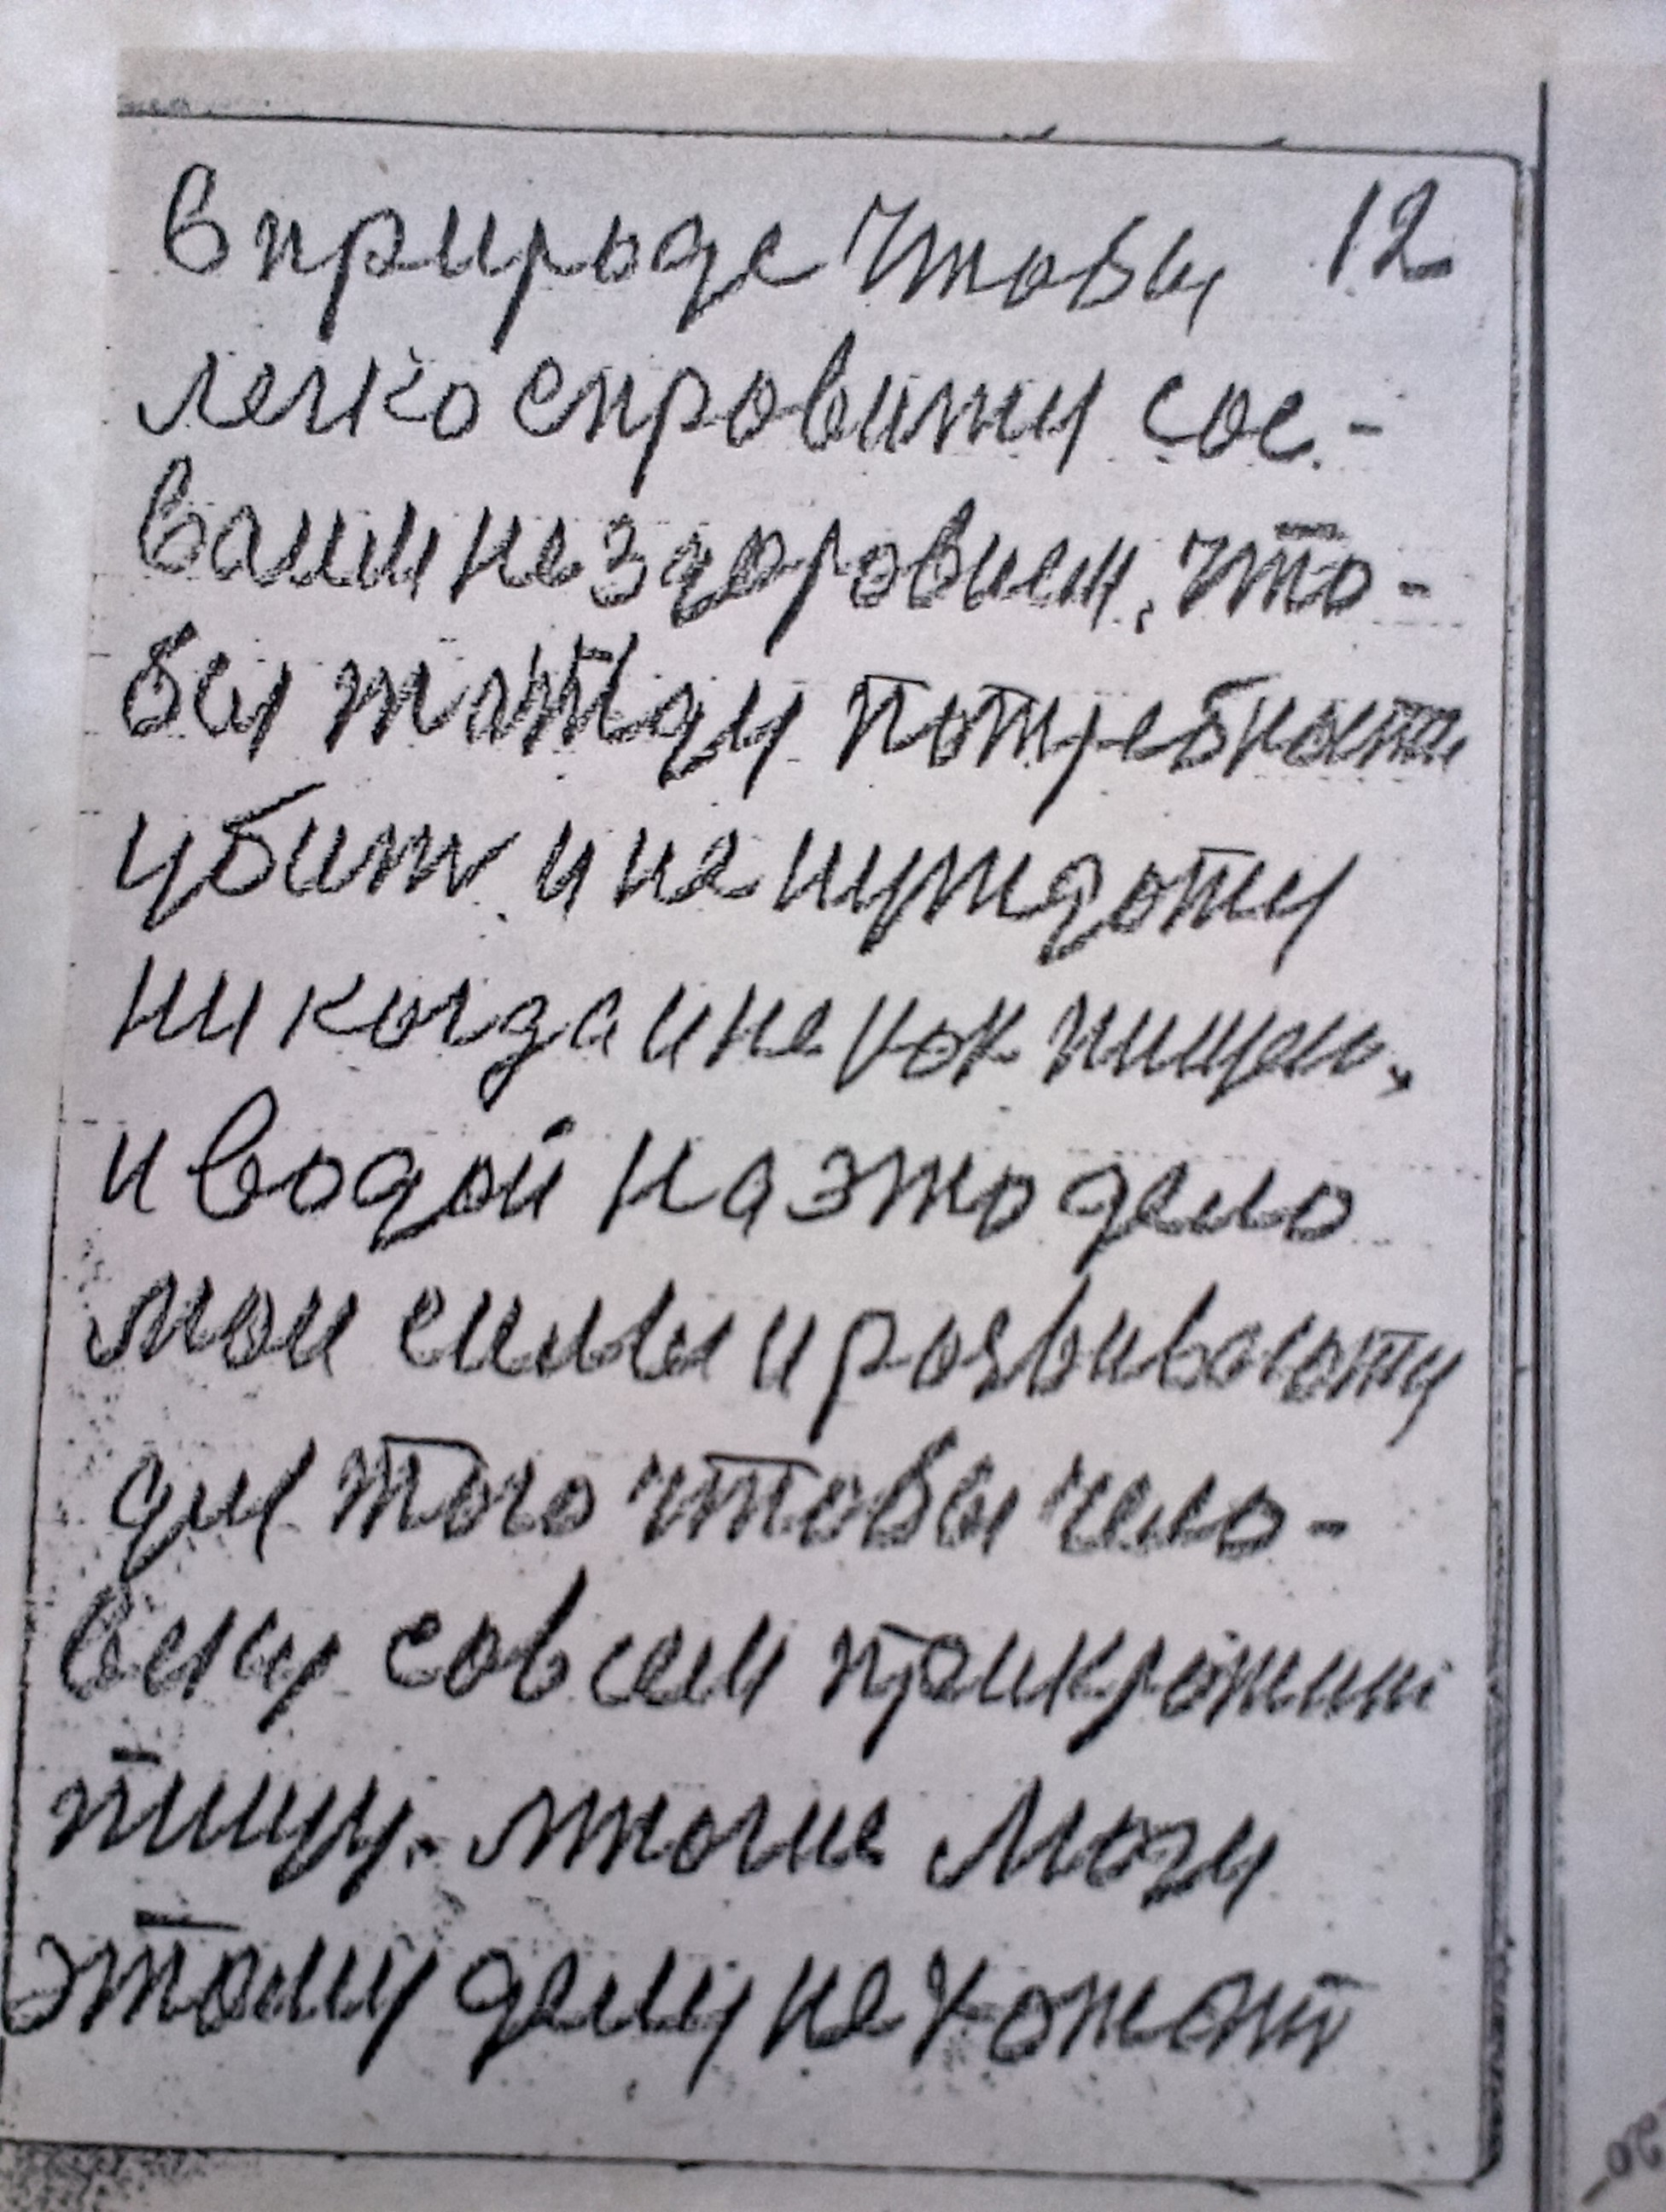 в природе чтобы 12
легко справити сос-
вашим нездоровием, что-
бы жажду потребность
убить и не нуждоти
никогда и не как пищей,
и водой на это дело
мои силы и розвивають
для того чтобы чело-
веку совсем прикротить
пищу. многие могу
этому делу не хотят